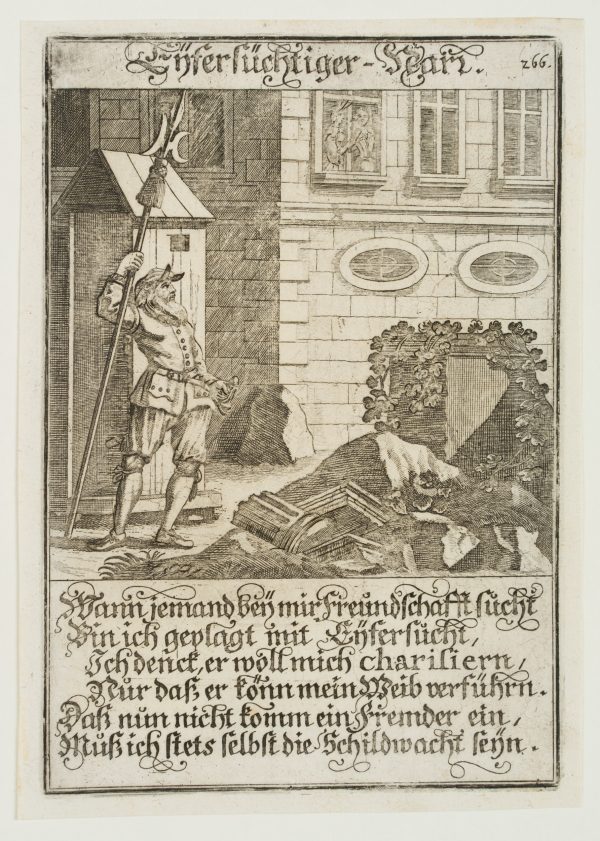 Eÿfersüchtiger-Narr.
266.
Wann jemand beÿ mir Freundschafft sucht
Bin ich geplagt mit Eÿfersucht,
Ich denck, er wöll mich chariliern,
Nur daß er könn mein Weib verführn.
Daß nun nicht komm ein Fremder ein,
Muß ich stets selbst die Schildwacht seÿn.